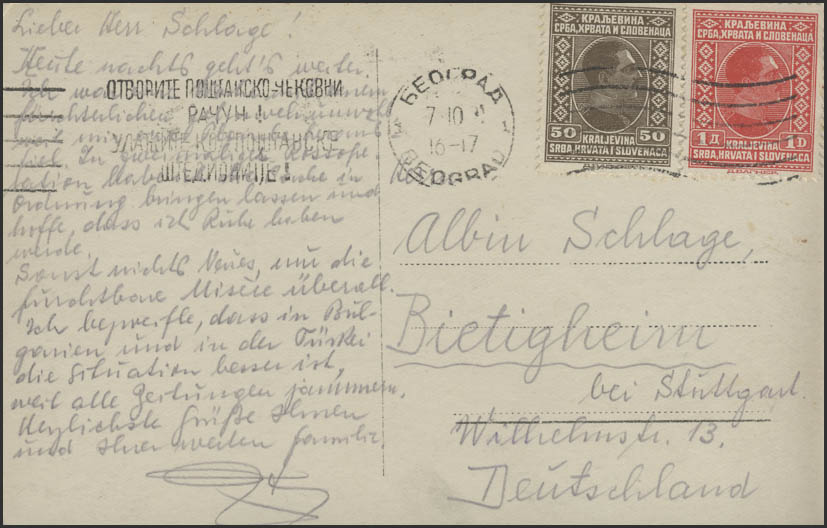 Lieber Herr Schlage!
Heute nachts geht's weiter.
Ich
fürchterlichen
mir
fiel. In
tation habe ich in
Ordnung bringen lassen und
hoffe, dass ich Ruhe haben
werde.
Sonst nichts Neues, nur die
furchtbare Misere überall.
Ich bezweifle, dass in Bul-
garien und in der Türkei
die Situation besser ist,
weil alle Zeitungen jammern.
Herzlichste Grüße Ihnen
und Ihrer werten Familie.
ОТВОРИТЕ ПОШТАНСКО-ЧЕКОВНИ
РАЧУН!
УЛАЖИТЕ КОД ПОШТАНСКЕ
ШТЕДИОНИЦЕ!
БЕОГРАД
7 10
16-17
BEOGRAD
КРАЉЕВИНА
СРБА, ХРВАТА И СЛОВЕНАЦА
50 KRALJEVINA 50
SRBA, HRVATA I SLOVENACA
КРАЉЕВИНА
СРБА, ХРВАТА И СЛОВЕНАЦА
1Д KRALJEVINA 1D
SRBA, HRVATA I SLOVENACA
Albin Schlage,
Bietigheim
bei Stuttgart.
Wilhelmstr. 13.
Deutschland